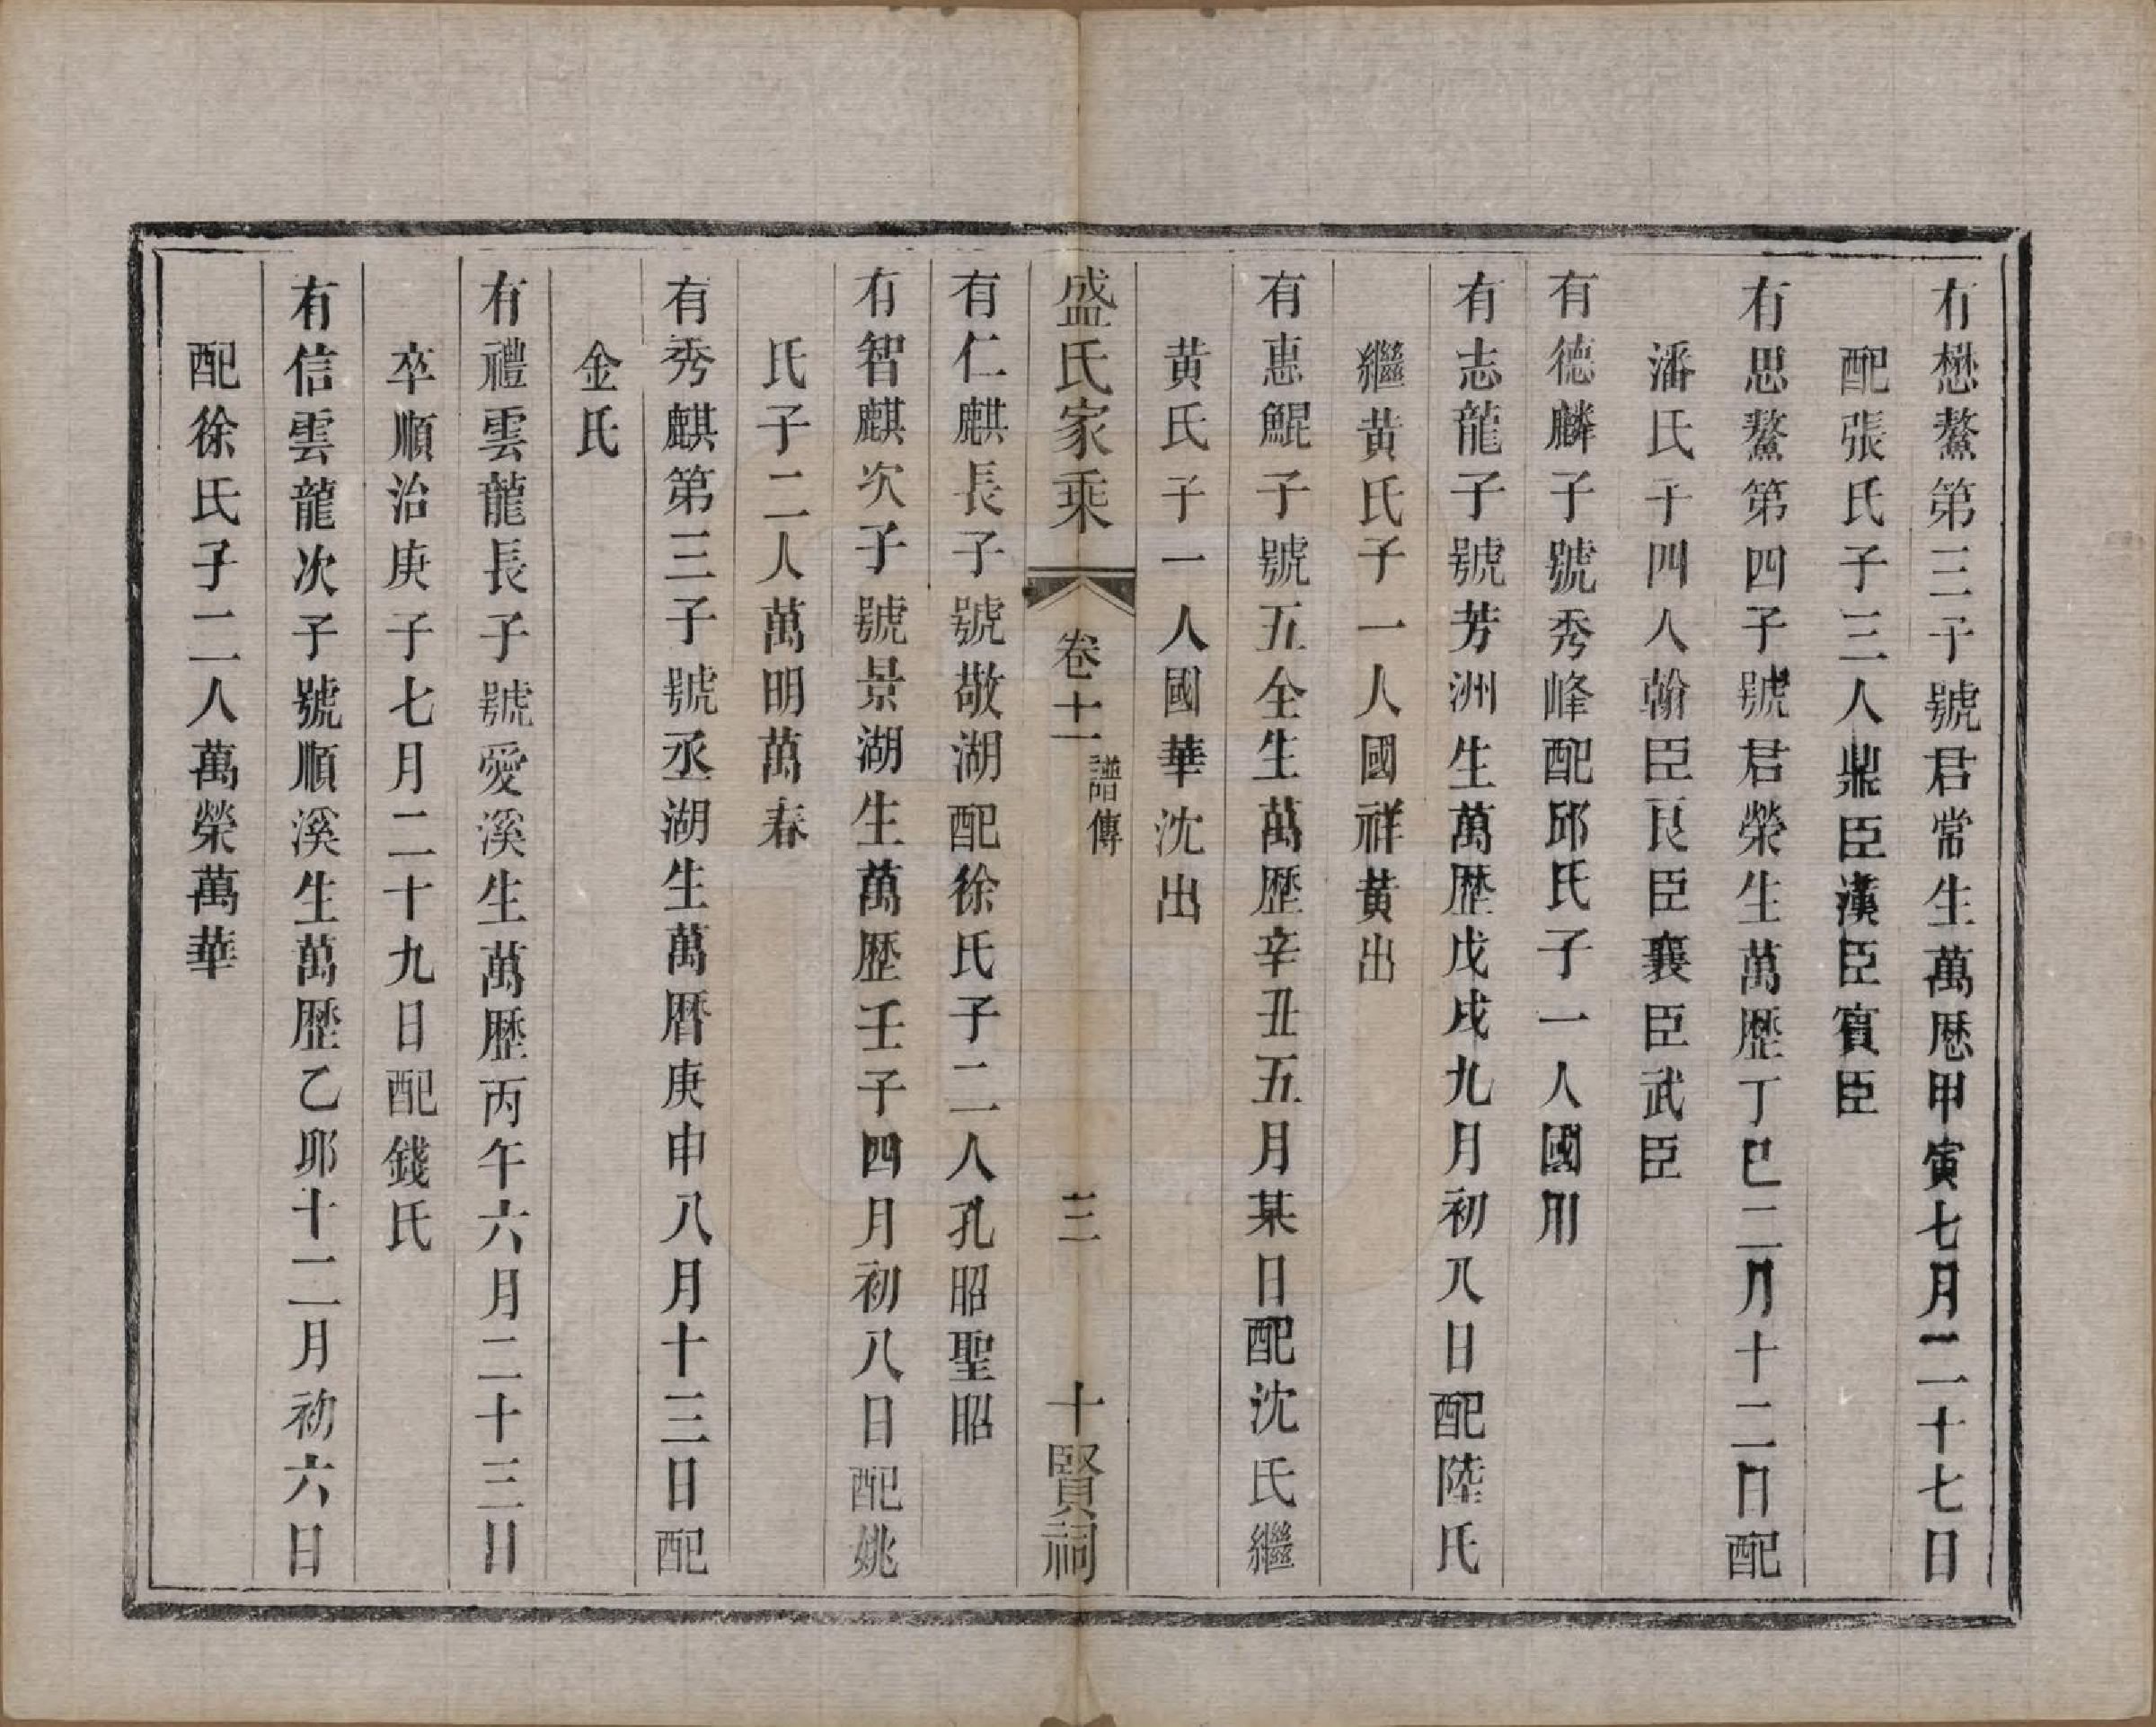 有懋鰲第三子號君常生萬歷甲寅七月二十七日
配張氏子三人鼎臣漢臣賓臣
有思鰲第四子號君榮生萬歷丁巳二月十二日配
潘氏子四人翰臣良臣襄臣武臣
有德麟子號秀峰配邱氏子一人國用
有志龍子號芳洲生萬歷戊戌九月初八日配陸氏
繼黄氏子一人國祥黄出
有惠鯤子號五全生萬歷辛丑五月某日配沈氏繼
黄氏子一人國華沈出
盛氏家乘 卷十一 譜傳 三 十賢祠
有仁麒長子號敬湖配徐氏子二人孔昭聖昭
有智麒次子號景湖生萬歷壬子四月初八日配姚
氏子二人萬明萬春
有秀麒第三子號丞湖生萬曆庚申八月十三日配
金氏
有禮雲龍長子號愛溪生萬歷丙午六月二十三日
卒順治庚子七月二十九日配錢氏
有信雲龍次子號順溪生萬歷乙卯十二月初六日
配徐氏子二人萬榮萬華